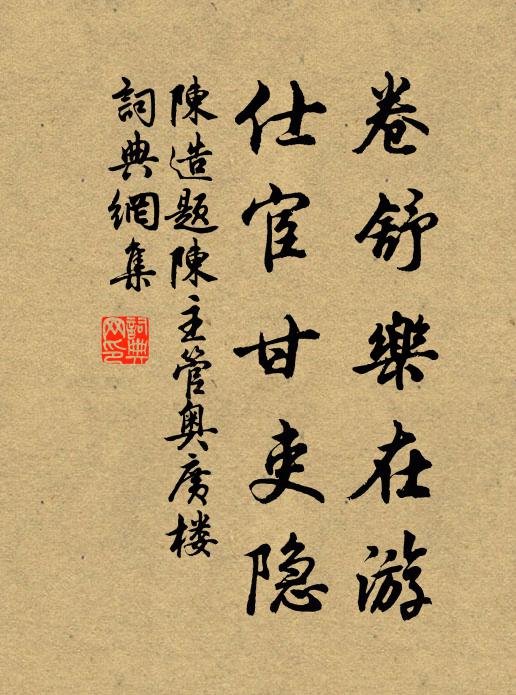 卷舒樂在游
仕宦甘吏隐
陳造題陳主管奥广楼
詞典網集
詞典网印